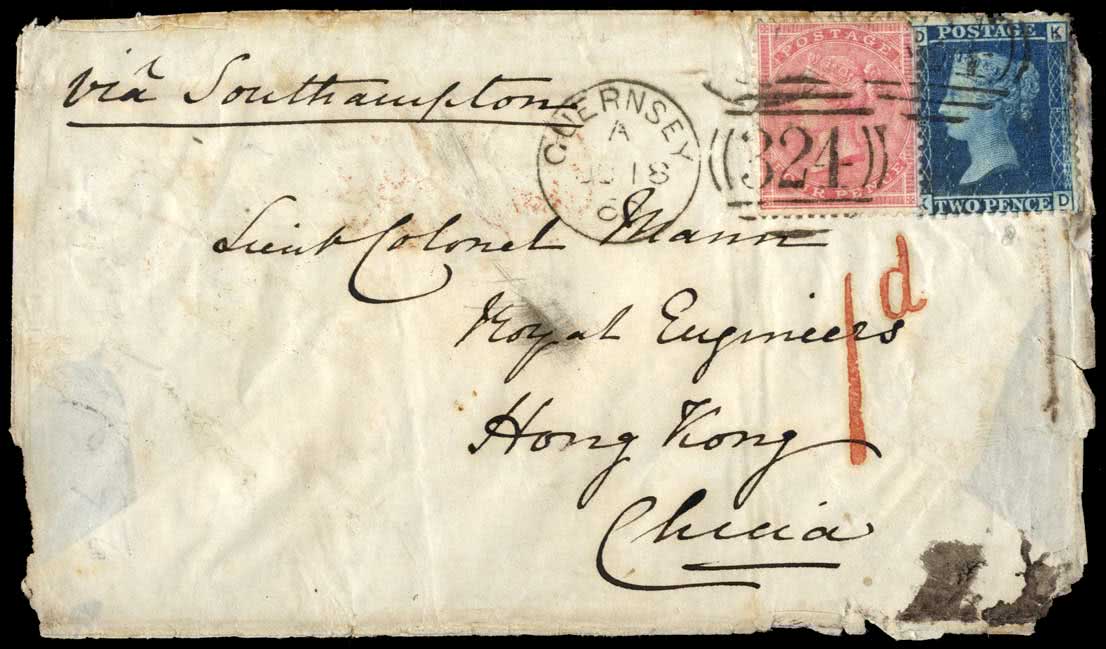 viâ Southampton
POSTAGE
FOUR PENCE
D K
POSTAGE
TWO PENCE
K D
GUERNSEY
A
18
324
Lieut Colonel Mann
1d
Royal Engineers
Hong Kong
China